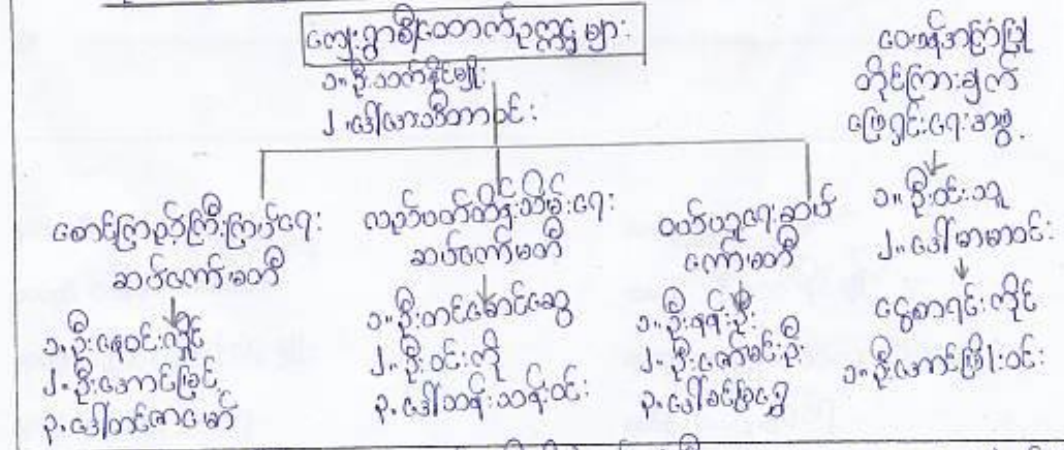 ကျေးရွာစီးတောက်ဥက္ကဋ္ဌများ
၁။ ဦးသက်နိုင်မျိုး
၂။ ဒေါ်အေးသီတာဝင်း
စောင့်ကြည့်ကြီးကြပ်ရေး
ဆပ်ကော်မတီ
၁။ ဦးနေဝင်းလှိုင်
၂။ ဦးအောင်မြင့်
၃။ ဒေါ်တင်ဇာမော်
လည်ပတ်ထိန်းသိမ်းရေး
ဆပ်ကော်မတီ
၁။ ဦးတင်မောင်ဆွေ
၂။ ဦးဝင်းကို
၃။ ဒေါ်သန်းသန်းဝင်း
ဝယ်ယူရေးဆပ်
ကော်မတီ
၁။ ဦးရန်
၂။ ဦးဇော်မင်းဦး
၃။ ဒေါ်ခင်မြရွှေ
ဝေဖန်အကြံပြု
တိုင်ကြားချက်
ဖြေရှင်းရေးအဖွဲ့
၁။ ဦးဝင်းသူ
၂။ ဒေါ်မာမာဝင်း
ငွေစာရင်းကိုင်
၁။ ဦးအောင်ဖြိုးဝင်း